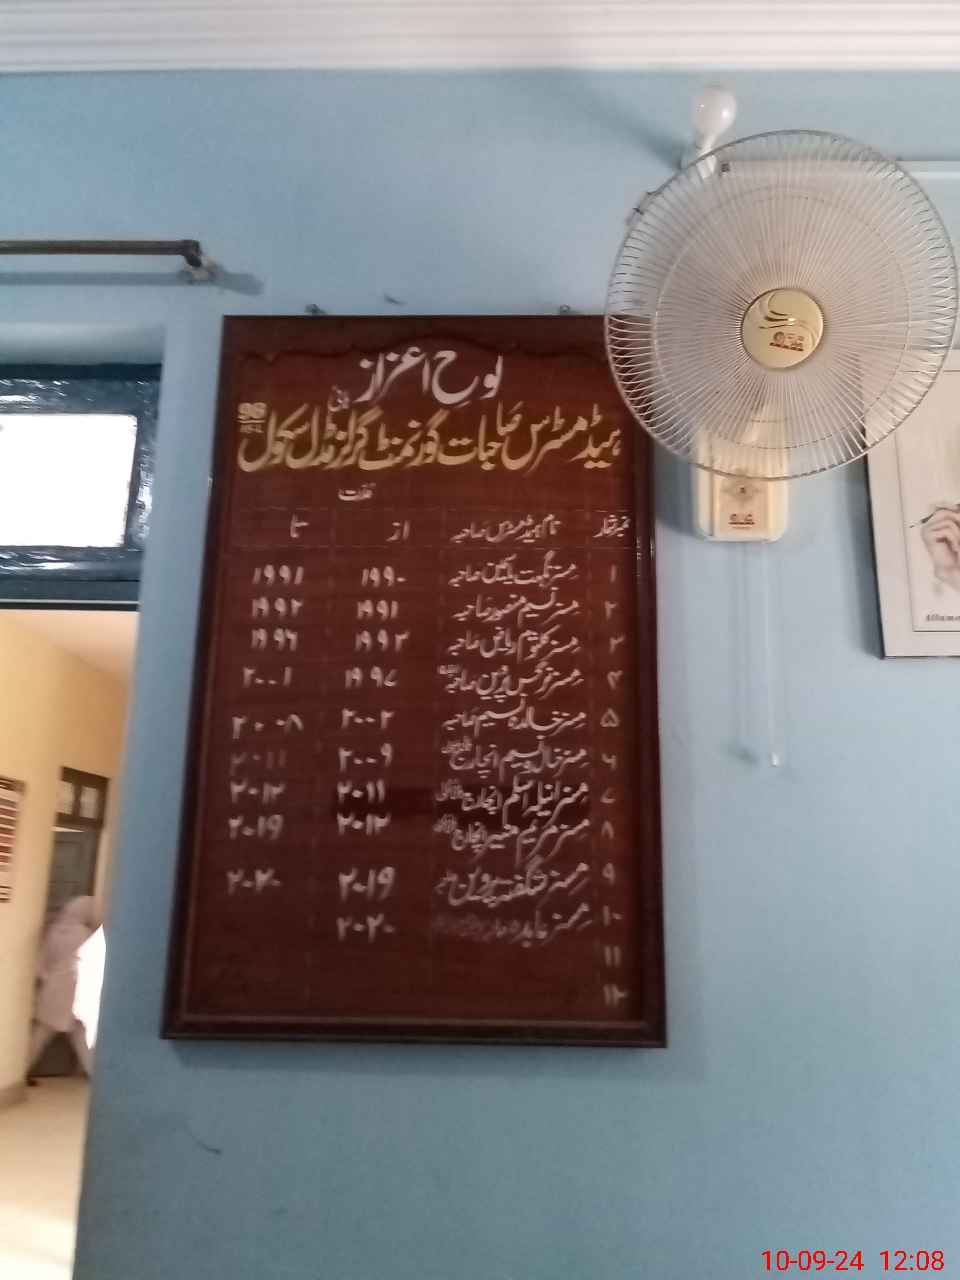 لوحِ اعزاز
ہائی
ہیڈ مسٹرس صاحبات گورنمنٹ گرلز مڈل سکول 98
نمبر شمار نام ہیڈ مسٹرس صاحبہ از تا
۱ مسز نگہت یاسمین صاحبہ ۱۹۹۰ ۱۹۹۱
۲ مسز نسیم منصور صاحبہ ۱۹۹۱ ۱۹۹۲
۳ مسز کلثوم ریاض صاحبہ ۱۹۹۲ ۱۹۹۶
۴ مسز نرگس پروین صاحبہ ۱۹۹۷ ۲۰۰۱
۵ مسز خالدہ نسیم صاحبہ ۲۰۰۲ ۲۰۰۸
۶ مسز خالدہ نسیم انچارج ۲۰۰۹ ۲۰۱۱
۷ مسز انیلہ اسلم انچارج ۲۰۱۱ ۲۰۱۲
۸ مسز مریم منیر انچارج ۲۰۱۲ ۲۰۱۹
۹ مسز شگفتہ پروین ۲۰۱۹ ۲۰۲۰
۱۰ مسز عابدہ ۲۰۲۰
۱۱
۱۲
10-09-24 12:08